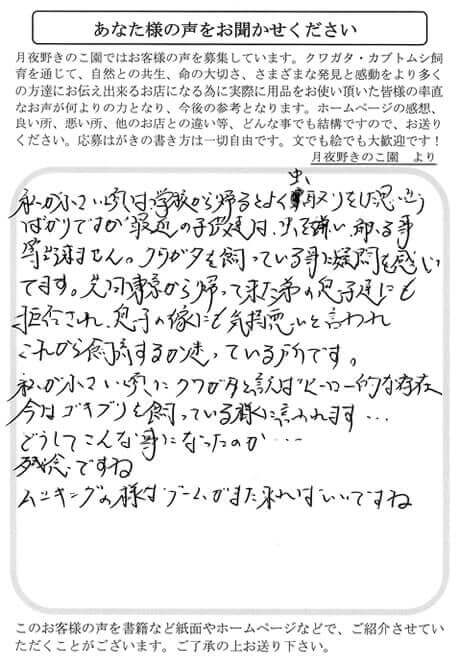 あなた様の声をお聞かせください
月夜野きのこ園ではお客様の声を募集しています。クワガタ・カブトムシ飼
育を通じて、自然との共生、命の大切さ、さまざまな発見と感動をより多く
の方達にお伝え出来るお店になる為に実際に用品をお使い頂いた皆様の率直
なお声が何よりの力となり、今後の参考となります。ホームページの感想、
良い所、悪い所、他のお店との違い等、どんな事でも結構ですので、お送り
ください。応募はがきの書き方は一切自由です。文でも絵でも大歓迎です！
月夜野きのこ園 より
私が小さい頃は学校から帰るとよく虫取りをした思い出
ばかりですが最近の子供達は、虫を嫌い、触る事
等出来ません。クワガタを飼っている事に疑問を感い
てます。先日東京から帰って来た弟の息子達にも
拒否され、息子の嫁にも気持悪いと言われ
これから飼育するか迷っている所です。
私が小さい頃はクワガタと言えばヒーロー的な存在
今はゴキブリを飼っている様に言われます…
どうしてこんな事になったのか…
残念ですね
ムシキングの様なブームがまた来ればいいですね
このお客様の声を書籍など紙面やホームページなどで、ご紹介させていた
だくことがございます。ご了承の上お送り下さい。